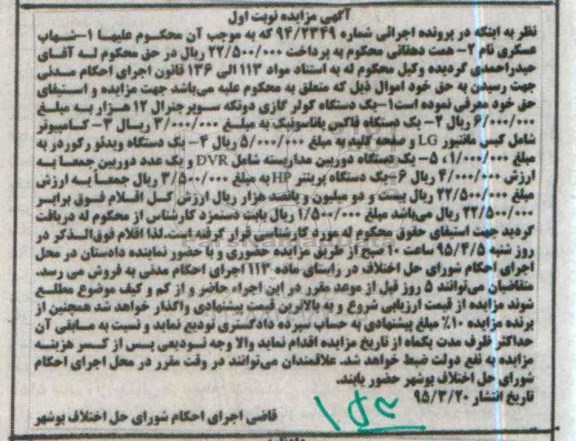 آگهی مزایده نوبت اول
نظر به اینکه در پرونده اجرائی شماره ۹۴/۲۳۴۹ که به موجب آن محکوم علیها ۱-شهاب
عسکری نام ۲- همت دهقانی محکوم به پرداخت ۲۲/۵۰۰/۰۰۰ ریال در حق محکوم له آقای
حیدراحمدی گردیده وکیل محکوم له به استناد مواد ۱۱۳ الی ۱۳۶ قانون اجرای احکام مدنی
جهت رسیدن به حق خود اموال ذیل که متعلق به محکوم علیه می‌باشد جهت مزایده و استیفای
حق خود معرفی نموده است۱-یک دستگاه کولر گازی دوتکه سوپر جنرال ۱۲ هزار به مبلغ
۶/۰۰۰/۰۰۰ ریال ۲- یک دستگاه فاکس پاناسونیک به مبلغ ۳/۰۰۰/۰۰۰ ریال ۳- کامپیوتر
شامل کیس مانیتور LG و صفحه کلید به مبلغ ۵/۰۰۰/۰۰۰ ریال ۴- یک دستگاه ویدئو رکوردر به
مبلغ ۱/۰۰۰/۰۰۰، ۵- یک دستگاه دوربین مداربسته شامل DVR و یک عدد دوربین جمعا به
ارزش ۴/۰۰۰/۰۰۰ ریال ۶-یک دستگاه پرینتر HP به مبلغ ۳/۵۰۰/۰۰۰ ریال جمعاً به ارزش
مبلغ ۲۲/۵۰۰/۰۰۰ ریال بیست و دو میلیون و پانصد هزار ریال ارزش کل اقلام فوق برابر
۲۲/۵۰۰/۰۰۰ ریال می‌باشد مبلغ ۱/۵۰۰/۰۰۰ ریال بابت دستمزد کارشناس از محکوم له دریافت
گردید جهت استیفای حقوق محکوم له مورد کارشناسی قرار گرفته است.لذا اقلام فوق‌الذکر در
روز شنبه ۹۵/۴/۵ ساعت ۱۰ صبح از طریق مزایده حضوری و با حضور نماینده دادستان در محل
اجرای احکام شورای حل اختلاف در راستای ماده ۱۱۳ اجرای احکام مدنی به فروش می رسد.
متقاضیان می‌توانند ۵ روز قبل از موعد مقرر در این اجراء حاضر و از کم و کیف موضوع مطلع
شوند مزایده از قیمت ارزیابی شروع و به بالاترین قیمت پیشنهادی واگذار خواهد شد همچنین از
برنده مزایده ۱۰٪ مبلغ پیشنهادی به حساب سپرده دادگستری تودیع نماید و نسبت به مابقی آن
حداکثر ظرف مدت یکماه از تاریخ مزایده اقدام نماید والا وجه تودیعی پس از کسر هزینه
مزایده به نفع دولت ضبط خواهد شد. علاقمندان می‌توانند در وقت مقرر در محل اجرای احکام
شورای حل اختلاف بوشهر حضور یابند.
تاریخ انتشار ۹۵/۳/۲۰
قاضی اجرای احکام شورای حل اختلاف بوشهر